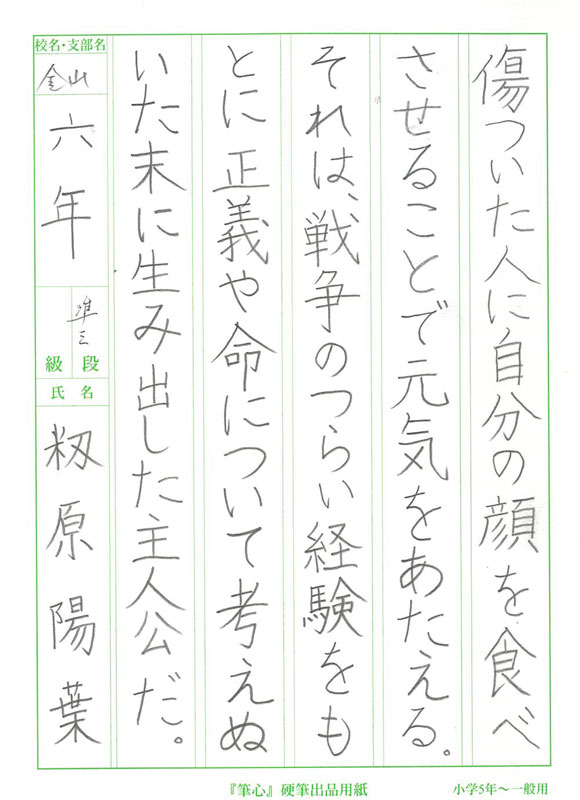 傷ついた人に自分の顔を食べ
させることで元気をあたえる。
それは、戦争のつらい経験をも
とに正義や命について考えぬ
いた末に生み出した主人公だ。
校名・支部名
金山
六年
準三
級 段
氏 名
籾原陽葉
『筆心』硬筆出品用紙
小学5年～一般用